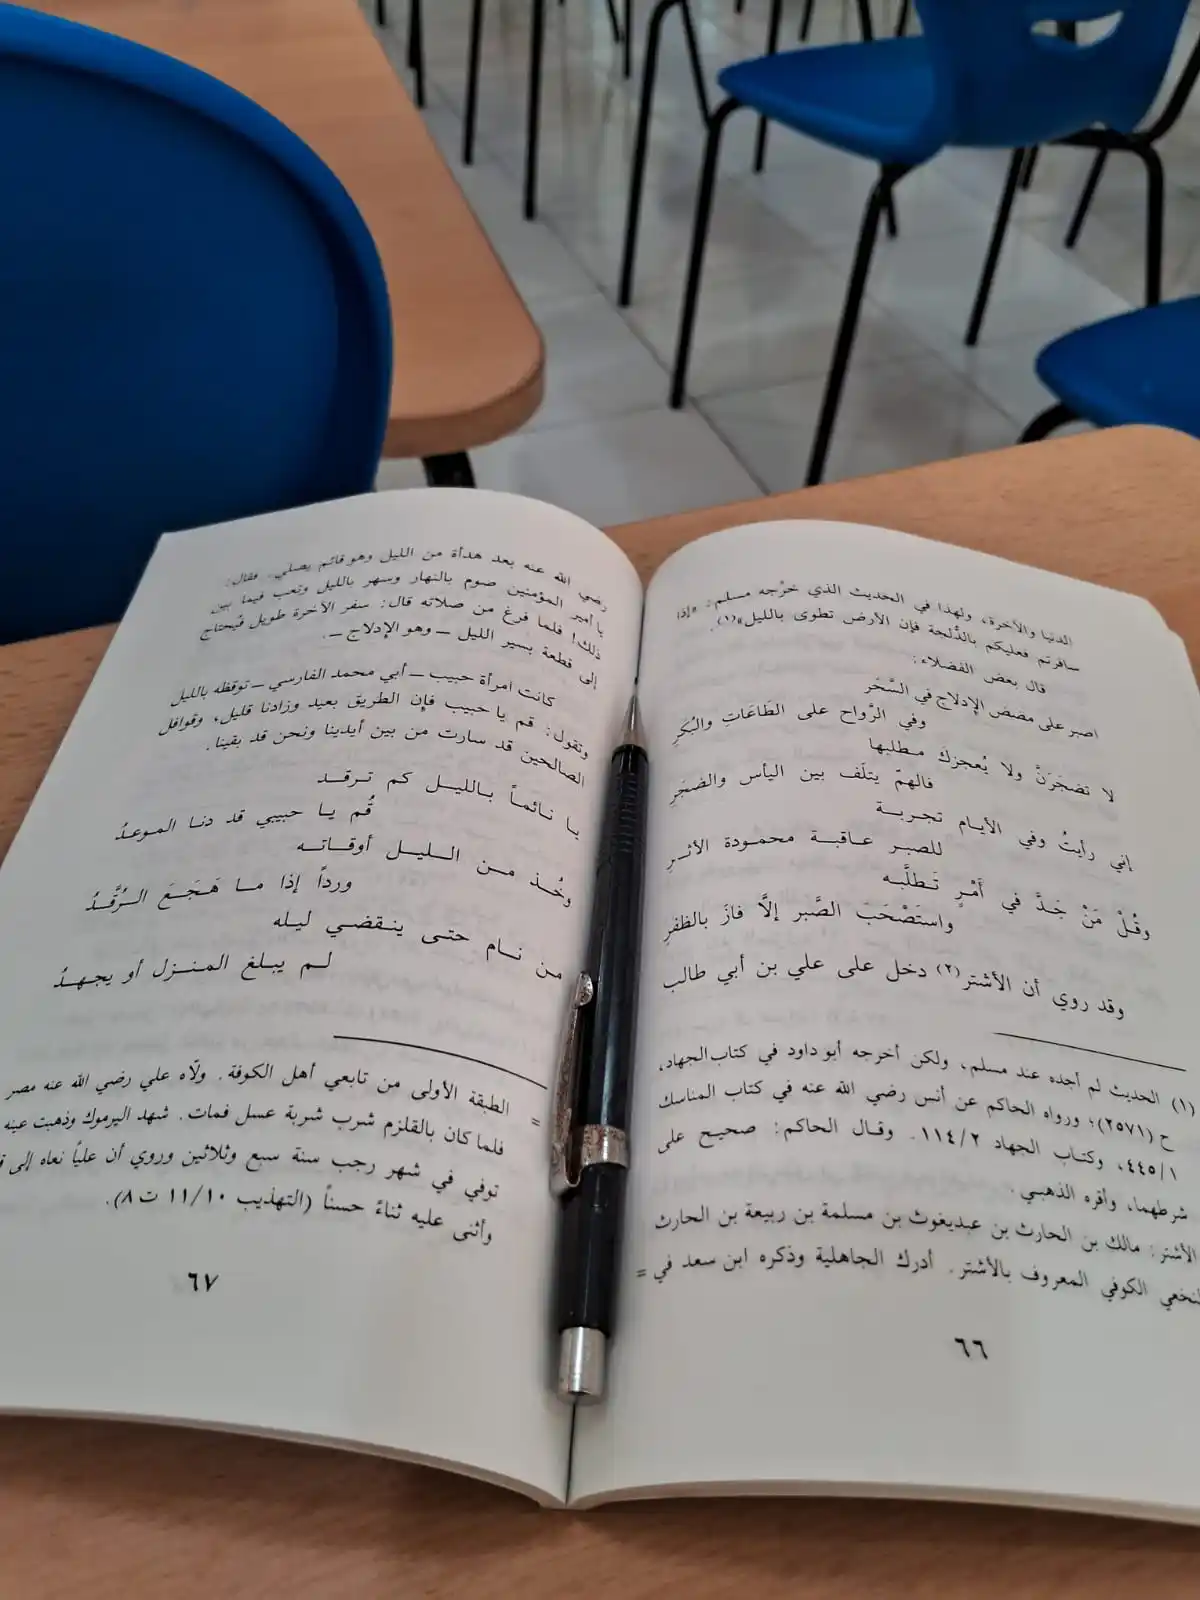 الدنيا والآخرة، ولهذا في الحديث الذي خرّجه مسلم: «إذا
سافرتم فعليكم بالدُّلجة فإن الأرض تطوى بالليل»(١).
قال بعض الفضلاء:
اصبر على مضض الإدلاج في السَّحَر
وفي الرَّواح على الطَاعَاتِ والبُكَرِ
لا تضجَرَنَّ ولا يُعجزكَ مطلبها
فالهمّ يتلَف بين اليأس والضجَرِ
إني رأيتُ وفي الأيام تجربة
للصبر عاقبة محمودة الأثرِ
وقُلْ مَنْ جَدَّ في أَمْرٍ تَطلَّبه
واستَصْحَبَ الصَّبر إلَّا فازَ بالظفرِ
وقد روي أن الأشتر(٢) دخل على علي بن أبي طالب
(١) الحديث لم أجده عند مسلم، ولكن أخرجه أبو داود في كتاب الجهاد،
ح (٢٥٧١)؛ ورواه الحاكم عن أنس رضي الله عنه في كتاب المناسك
٤٤٥/١، وكتاب الجهاد ١١٤/٢. وقال الحاكم: صحيح على
شرطهما، وأقره الذهبي.
الأشتر: مالك بن الحارث بن عبديغوث بن مسلمة بن ربيعة بن الحارث
النخعي الكوفي المعروف بالأشتر. أدرك الجاهلية وذكره ابن سعد في =
٦٦
رضي الله عنه بعد هدأة من الليل وهو قائم يصلي. فقال:
يا أمير المؤمنين صوم بالنهار وسهر بالليل وتعب فيما بين
ذلك! فلما فرغ من صلاته قال: سفر الآخرة طويل فيُحتاج
إلى قطعة بسير الليل — وهو الإدلاج —.
كانت امرأة حبيب — أبي محمد الفارسي — توقظه بالليل
وتقول: قم يا حبيب فإن الطريق بعيد وزادنا قليل، وقوافل
الصالحين قد سارت من بين أيدينا ونحن قد بقينا.
يا نائماً بالليل كم ترقد
قُم يا حبيبي قد دنا الموعدُ
وخُذ من الليل أوقاته
ورداً إذا ما هَجَعَ الرُقَّدُ
من نام حتى ينقضي ليله
لم يبلغ المنزل أو يجهدُ
= الطبقة الأولى من تابعي أهل الكوفة. ولّاه علي رضي الله عنه مصر
فلما كان بالقلزم شرب شربة عسل فمات. شهد اليرموك وذهبت عينه
توفي في شهر رجب سنة سبع وثلاثين وروي أن علياً نعاه إلى
وأثنى عليه ثناءً حسناً (التهذيب ١١/١٠ ت ٨).
٦٧